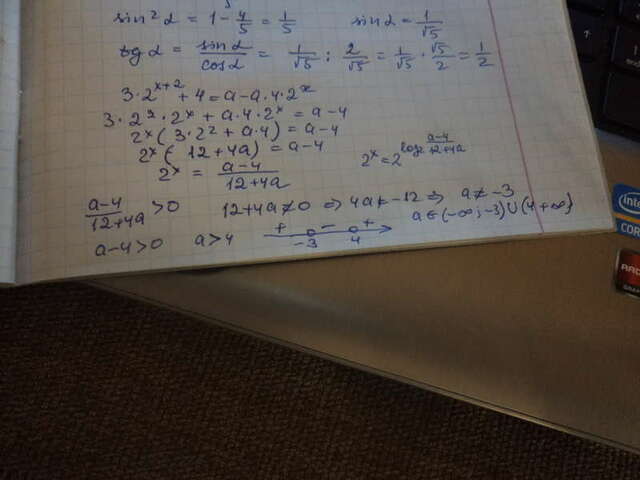 sin²α = 1 - 4/5 = 1/5 sinα = 1/√5
tgα = sinα/cosα = 1/√5 : 2/√5 = 1/√5 · √5/2 = 1/2
3·2^(x+2) + 4 = a - a·4·2^x
3·2²·2^x + a·4·2^x = a-4
2^x(3·2² + a·4) = a-4
2^x(12+4a) = a-4
2^x = (a-4)/(12+4a) 2^x = 2^(log₂ (a-4)/(12+4a))
(a-4)/(12+4a) > 0 12+4a ≠ 0 ⇒ 4a ≠ -12 ⇒ a ≠ -3
a-4>0 a>4 + - + a ∈ (-∞; -3) ∪ (4 +∞}
-3 4
intel
COR